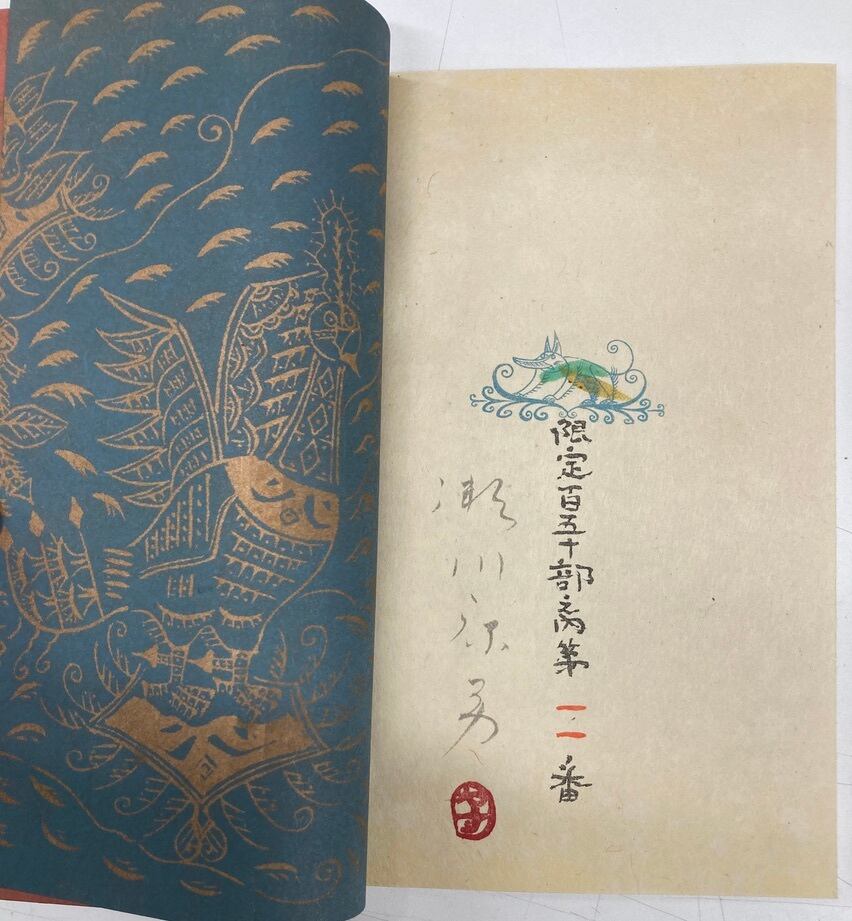 限定百五十部内第二番
瀬川康男